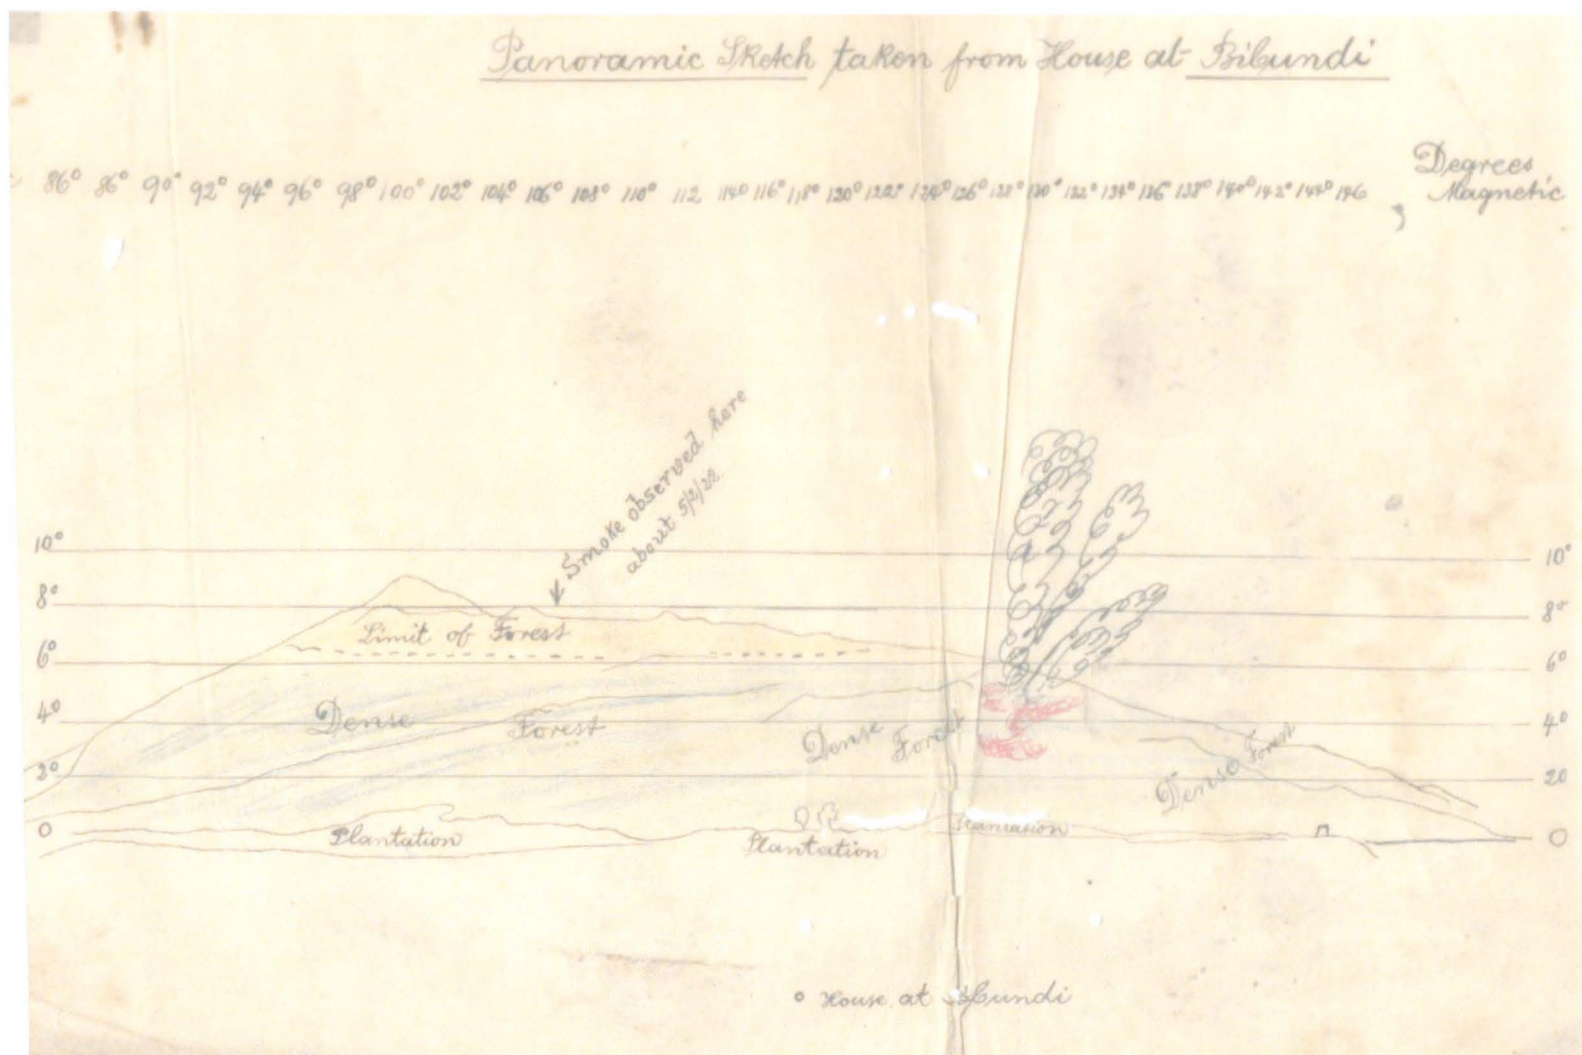 Panoramic Sketch taken from House at Bibundi
Degrees
Magnetic
86° 86° 90° 92° 94° 96° 98° 100° 102° 104° 106° 108° 110° 112 114° 116° 118° 120° 122° 124° 126° 128° 130° 132° 134° 136 138° 140° 142° 144° 146
Smoke observed here
about 5/2/22
10° 10°
8° 8°
Limit of Forest
6° 6°
Dense Forest
Dense Forest
Dense Forest
4° 4°
2° 20
0 0
Plantation
Plantation
Plantation
House at Bibundi